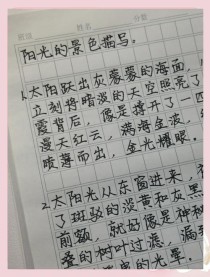 班级 姓名 分数
阳光的景色描写。
1.太阳跃出灰蒙蒙的海面,
立刻将暗淡的天空照亮了
霞背后,像是撑开了一四
漫天红云,满海金波,
喷薄而出,金光耀眼。
2.太阳光从东窗进来,
了斑驳的淡黄和灰黑
前额,就好像是神秘
叠的树叶过滤,漏
的光晕。